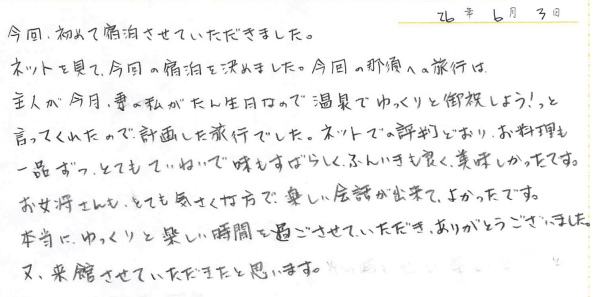 26 年 6 月 3 日
今回、初めて宿泊させていただきました。
ネットを見て、今回の宿泊を決めました。今回の那須への旅行は、
主人が今月、妻の私がたん生日なので温泉でゆっくりと御祝しよう!っと
言ってくれたので、計画した旅行でした。ネットでの評判どおり、お料理も
一品ずつ、とてもていねいで味もすばらしく、ふんいきも良く、美味しかったです。
お女将さんも、とても気さくな方で、楽しい会話が出来て、よかったです。
本当に、ゆっくりと楽しい時間を過ごさせていただき、ありがとうございました。
又、来館させていただきたと思います。